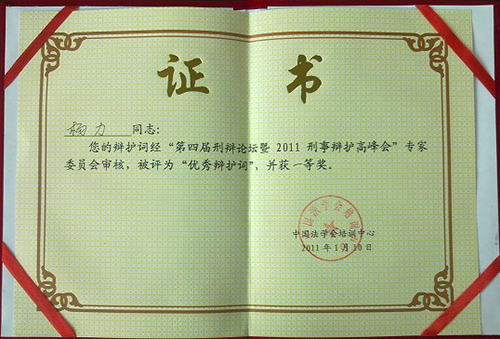 证书
杨力 同志:
您的辩护词经“第四届刑辩论坛暨 2011 刑事辩护高峰会”专家
委员会审核，被评为“优秀辩护词”，并获一等奖。
中国法学会培训中心
2011 年 1 月 10 日